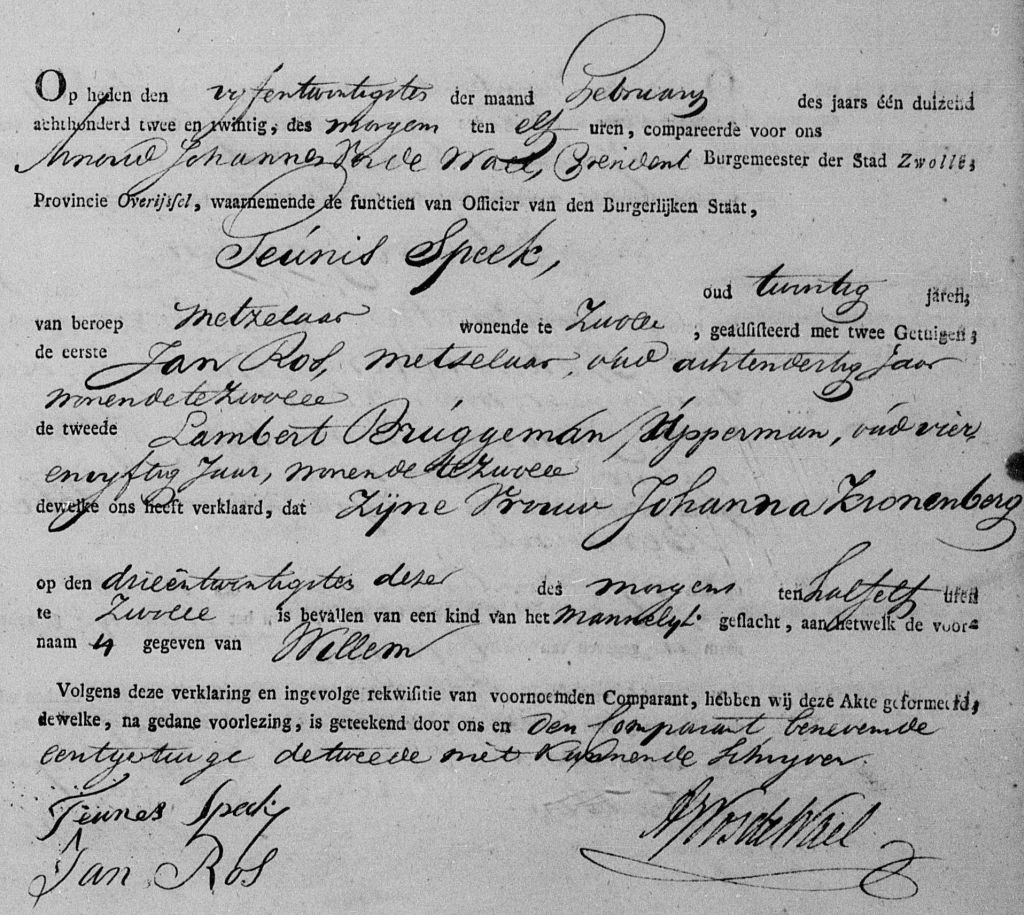 Op heden den vyfentwintigste der maand February des jaars één duizend
achthonderd twee en twintig, des morgens ten elf uren, compareerde voor ons
Arnoud Johannes Vos de Wael, President Burgemeester der Stad Zwolle,
Provincie Overijssel, waarnemende de functien van Officier van den Burgerlijken Staat,
Teunis Speek,
oud twintig jaren,
van beroep Metzelaar wonende te Zwolle, geadsisteerd met twee Getuigen;
de eerste Jan Ros, metselaar, oud achtendertig Jaar
wonende te Zwolle
de tweede Lambert Bruggeman, opperman, oud vier
envyftig Jaar, wonende te Zwolle
dewelke ons heeft verklaard, dat Zyne Vrouw Johanna Kronenberg
op den drieëntwintigste dezer des morgens ten half elf uren
te Zwolle is bevallen van een kind van het Mannelyk geslacht, aan hetwelk de voor-
naam is gegeven van Willem
Volgens deze verklaring en ingevolge rekwisitie van voornoemden Comparant, hebben wij deze Akte geformeerd,
dewelke, na gedane voorlezing, is geteekend door ons en den Comparant benevens de
een getuige de tweede niet kunnende Schryven.
Teunes Speek
AJVosdeWael
Jan Ros